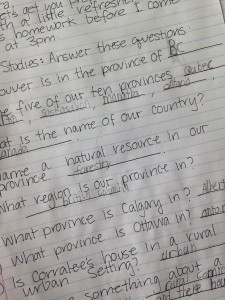 ets get you
th a little refreshe
s homework before I come
at 3pm
Studies: Answer these questions:
ouver is in the province of BC
e five of our ten provinces,
manitoba
at is the name of our country?
canada
name a natural resource in our
province forestry
what region is our province in?
british
What province is Calgary in? Albert
What province is Ottawa in? ontar
Is Corralee's house in a rural
urban setting? urban
something about a